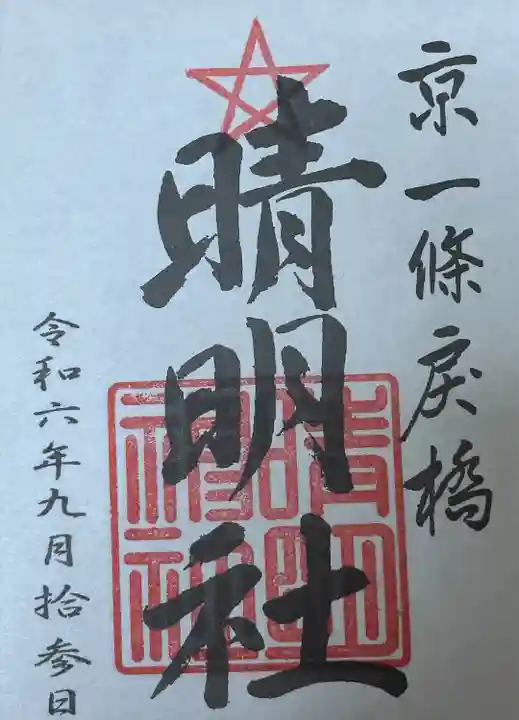 京一條戻橋
晴明社
晴明
神社
令和六年九月拾参日